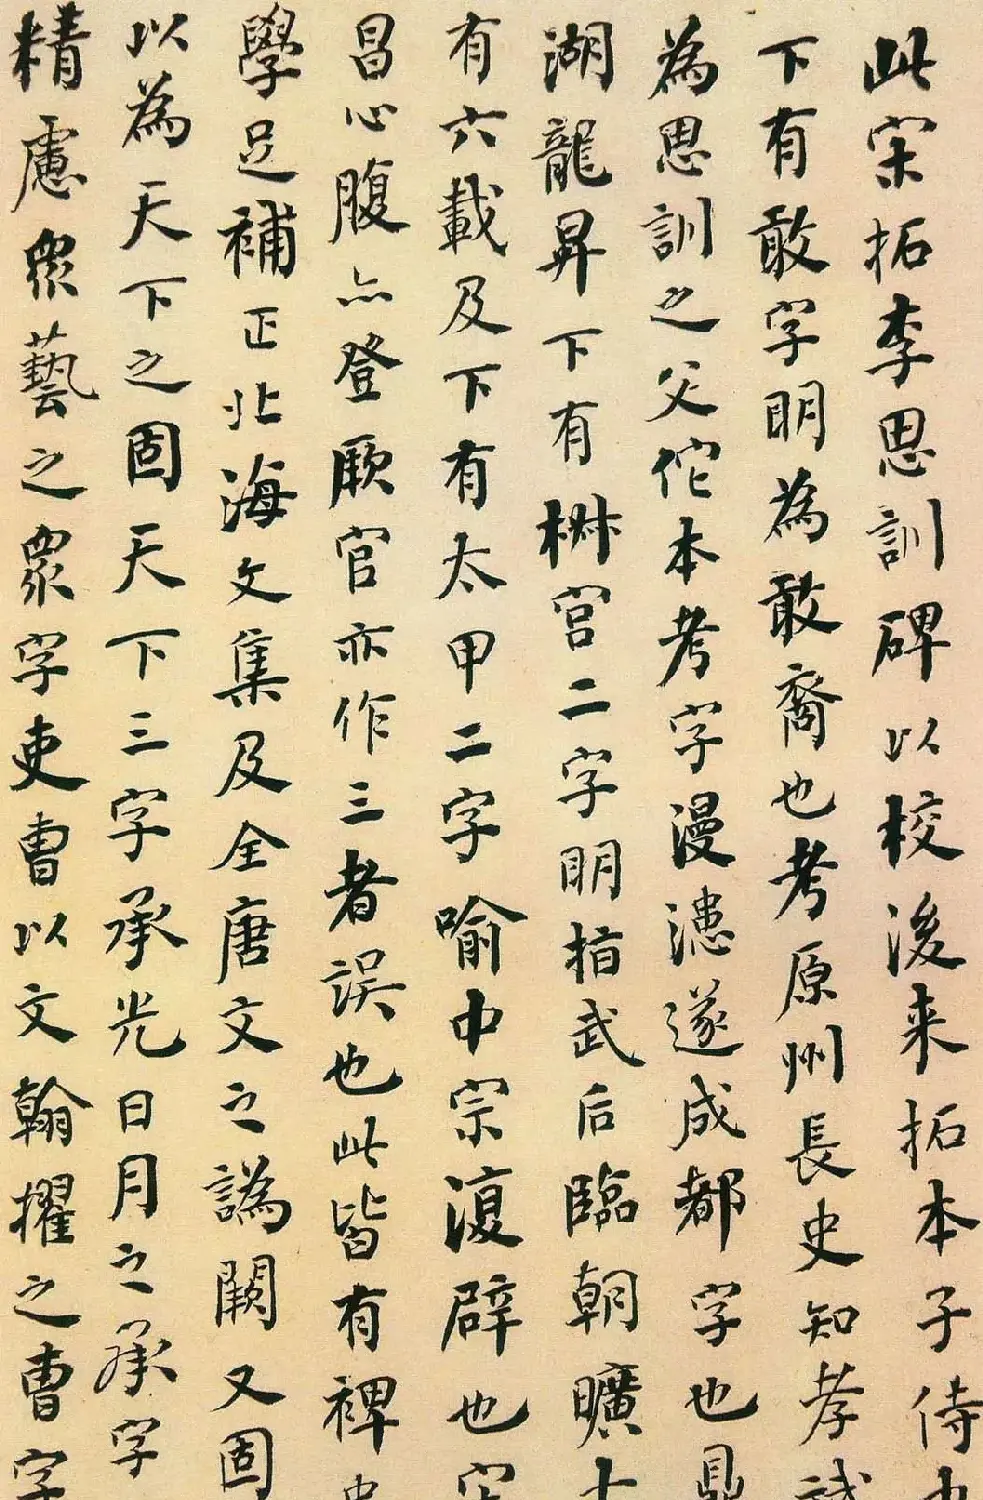 此宋拓李思訓碑以校後来拓本子侍
下有敢字明為敢裔也考原州長史知孝
為思訓之父佗本考字漫漶遂成都字也鼎
湖龍昇下有椒宮二字明指武后臨朝曠
有六載及下有太甲二字喻中宗復辟也
昌心腹亦登厥官亦作三者誤也此皆有裨
學足補正北海文集及全唐文之譌闕又固
以為天下之固天下三字承光日月之承字
精慮衆藝之衆字吏曹以文翰擢之曹字